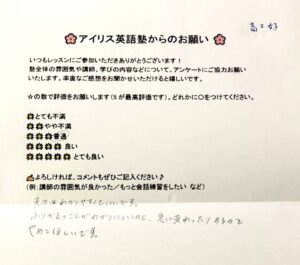 高2 女子
🌸アイリス英語塾からのお願い🌸
いつもレッスンにご参加いただきありがとうございます!
塾全体の雰囲気や講師、学びの内容などについて、アンケートにご協力お願い
いたします。率直なご感想をお聞かせいただけると嬉しいです。
☆の数で評価をお願いします(5が最高評価です)。どれかに○をつけてください。
とても不満
やや不満
普通
良い
とても良い
よろしければ、コメントもぜひご記入ください♪
(例:講師の雰囲気が良かった/もっと会話練習をしたい など)
先生はわかりやすくていいです。
ふりかえのことがわかりにくいのと、急に変わったりするのを
やめてほしいです。